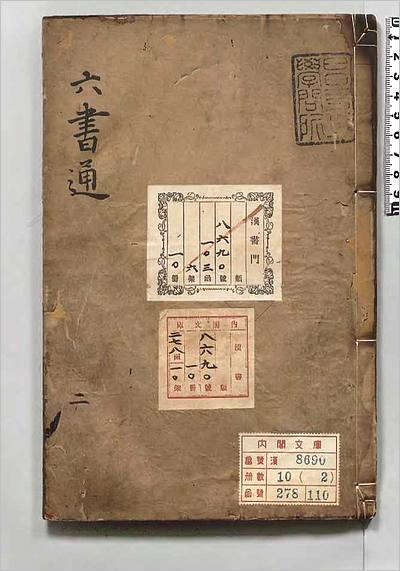 六書通
二
昌平坂
學問所
漢書門
類
八六九〇號
一〇三函
六架
一〇冊
內閣文庫
漢書
類
八六九〇號
一〇冊
二七八函
一〇架
内閣文庫
番號 漢 8690
冊數 10 ( 2)
函號 278 110